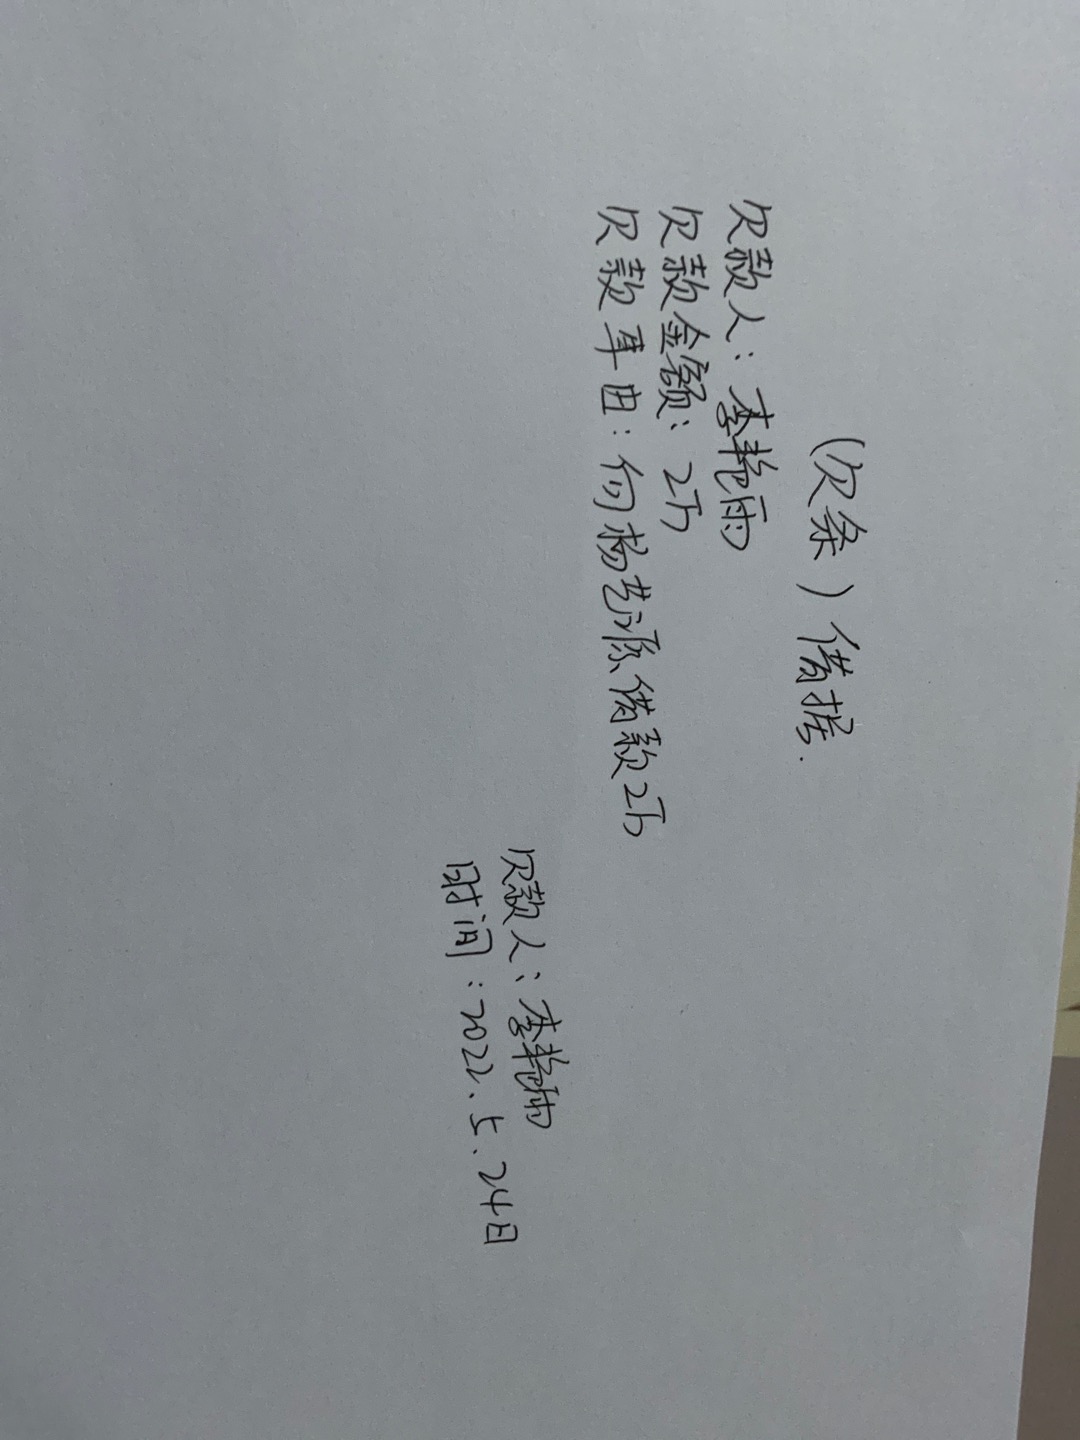 (欠条)借据.
欠款人:李艳雨
欠款金额:2万
欠款事由:向杨艺源借款2万
欠款人:李艳雨
时间:2022.5.24日